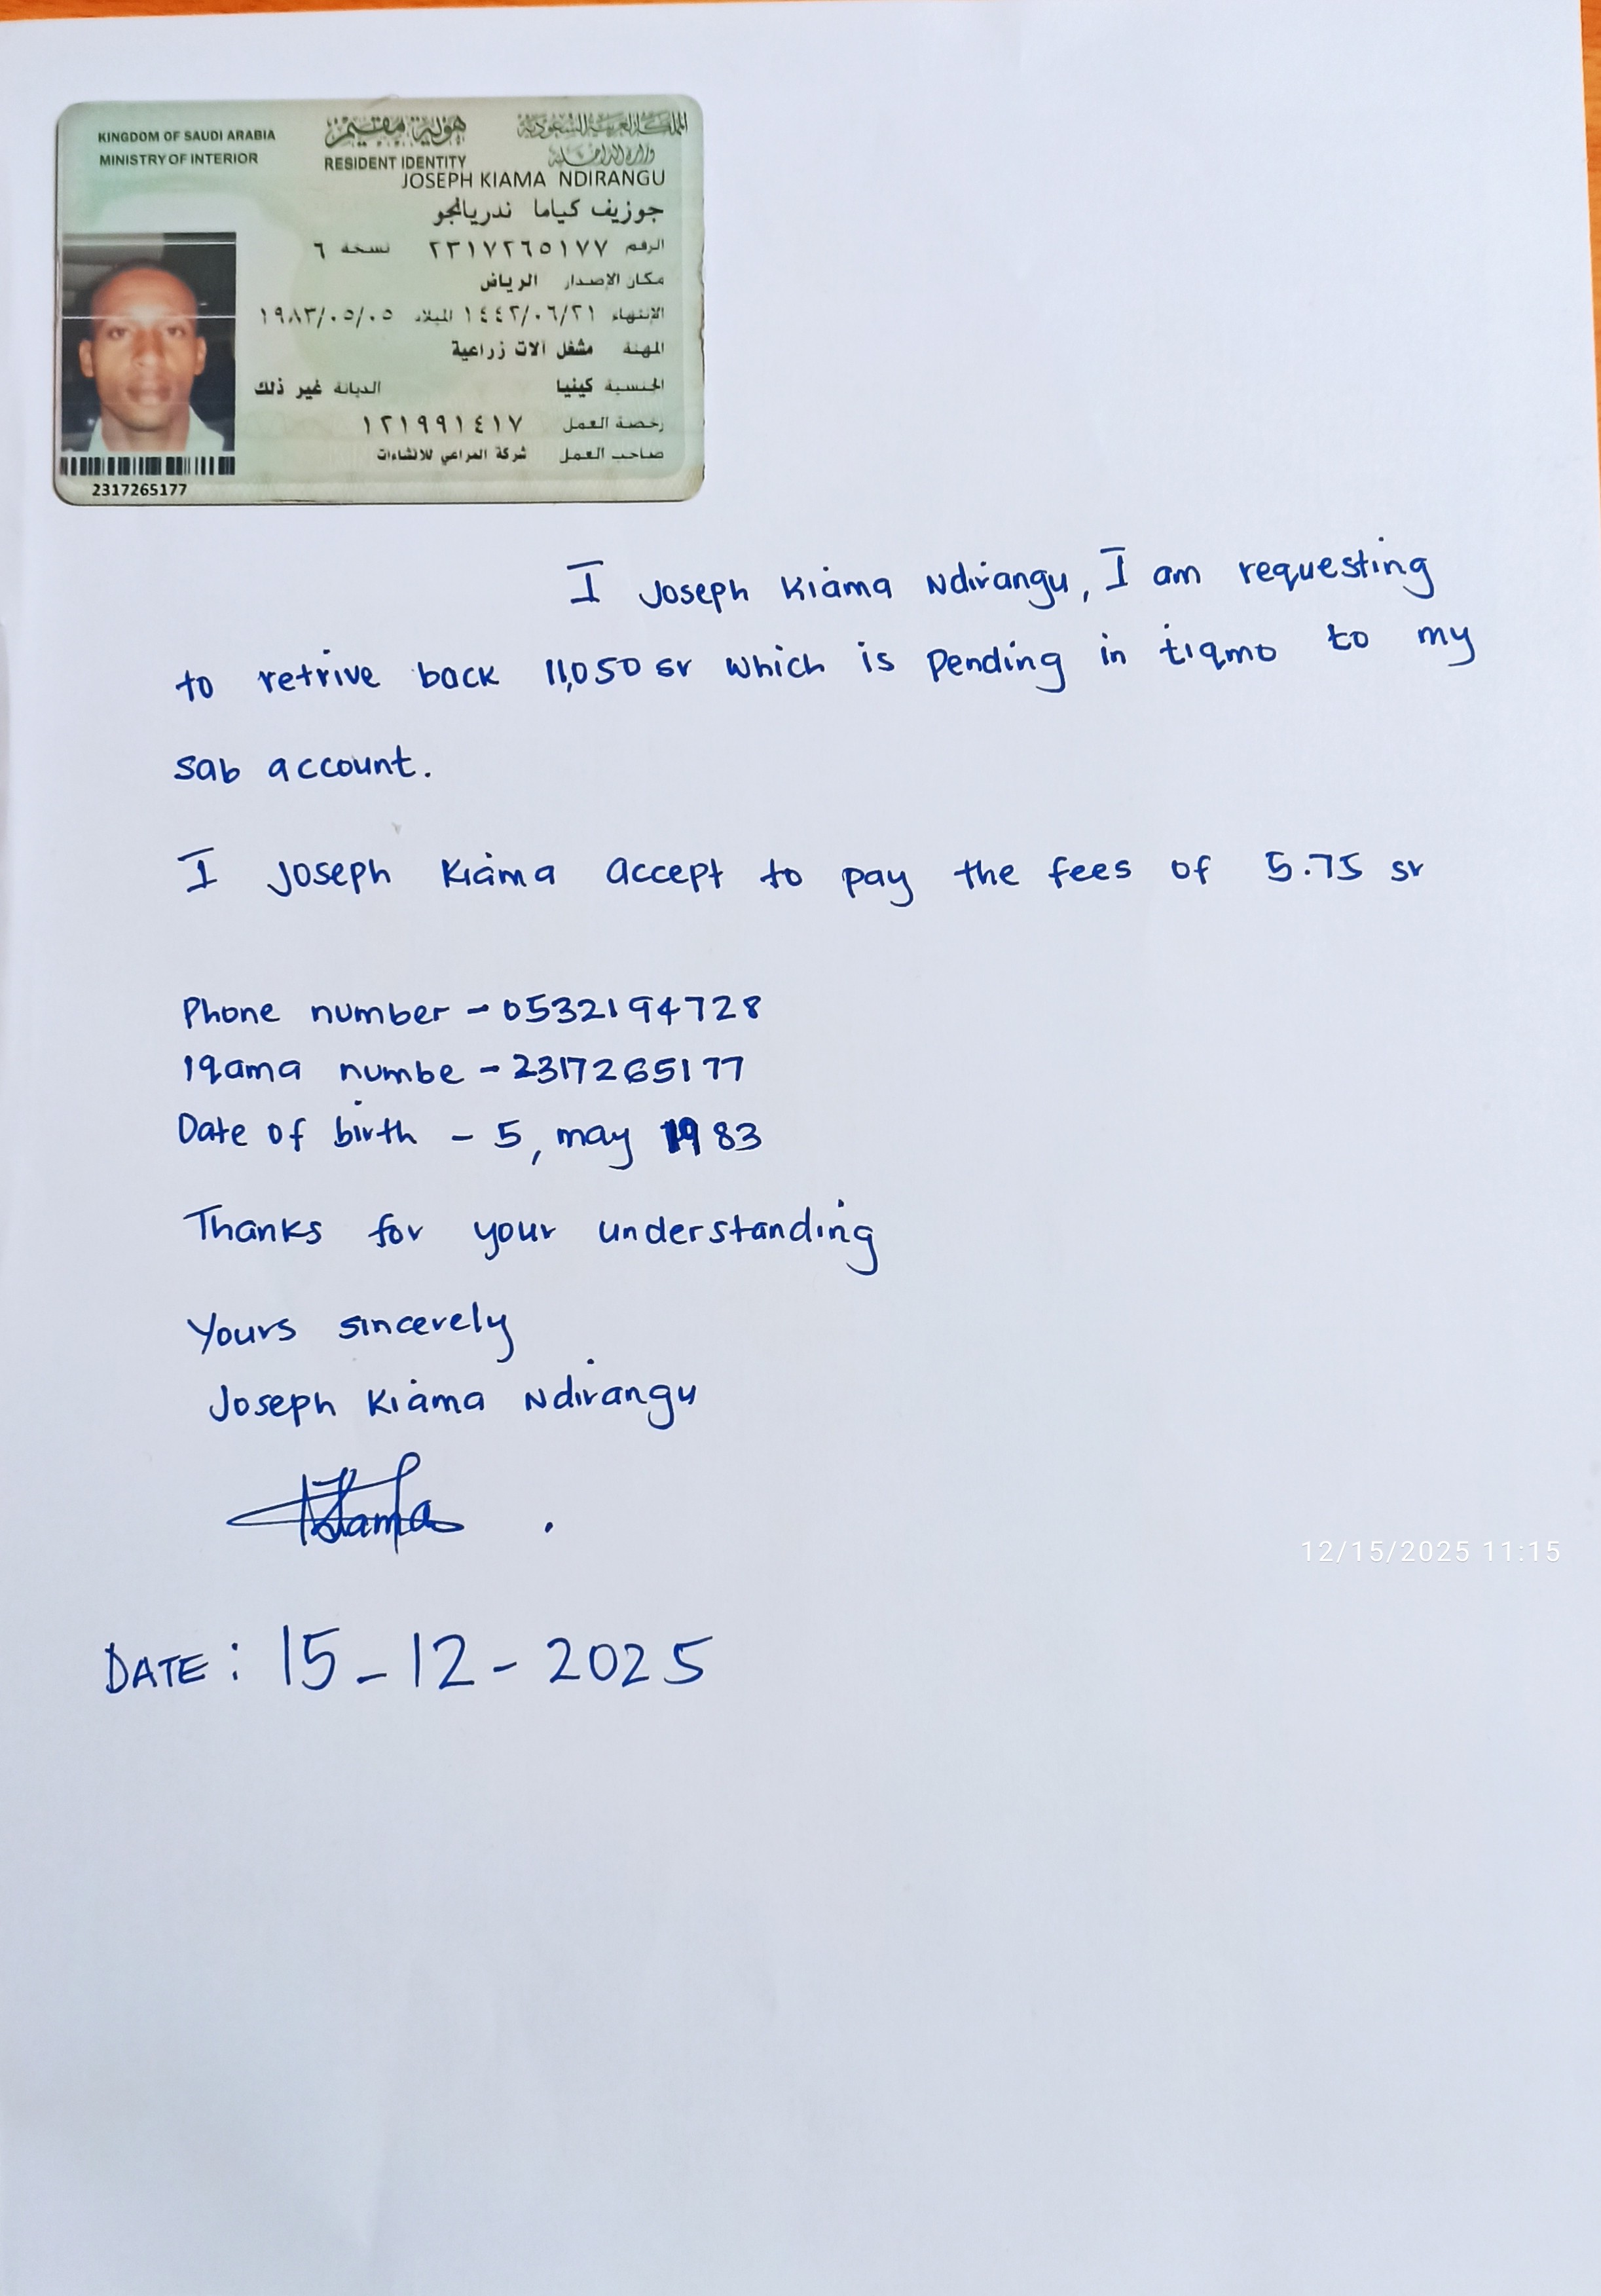 KINGDOM OF SAUDI ARABIA
MINISTRY OF INTERIOR
هوية مقيم
RESIDENT IDENTITY
المملكة العربية السعودية
وزارة الداخلية
JOSEPH KIAMA NDIRANGU
جوزيف كياما ندريانجو
الرقم ٢٣١٧٢٦٥١٧٧ نسخة ٦
مكان الإصدار الرياض
الإنتهاء ١٤٤٢/٠٦/٢١ الميلاد ١٩٨٣/٠٥/٠٥
المهنة مشغل الات زراعية
الجنسية كينيا الديانة غير ذلك
رخصة العمل ١٢١٩٩١٤١٧
صاحب العمل شركة المراعي للانشاءات
2317265177
I Joseph Kiama Ndirangu, I am requesting
to retrive back 11,050 sr which is pending in tiqmo to my
sab account.
I Joseph Kiama accept to pay the fees of 5.75 sr
Phone number - 0532194728
Iqama numbe - 2317265177
Date of birth - 5, may 1983
Thanks for your understanding
Yours sincerely
Joseph Kiama Ndirangu
Kiama
DATE: 15-12-2025
12/15/2025 11:15